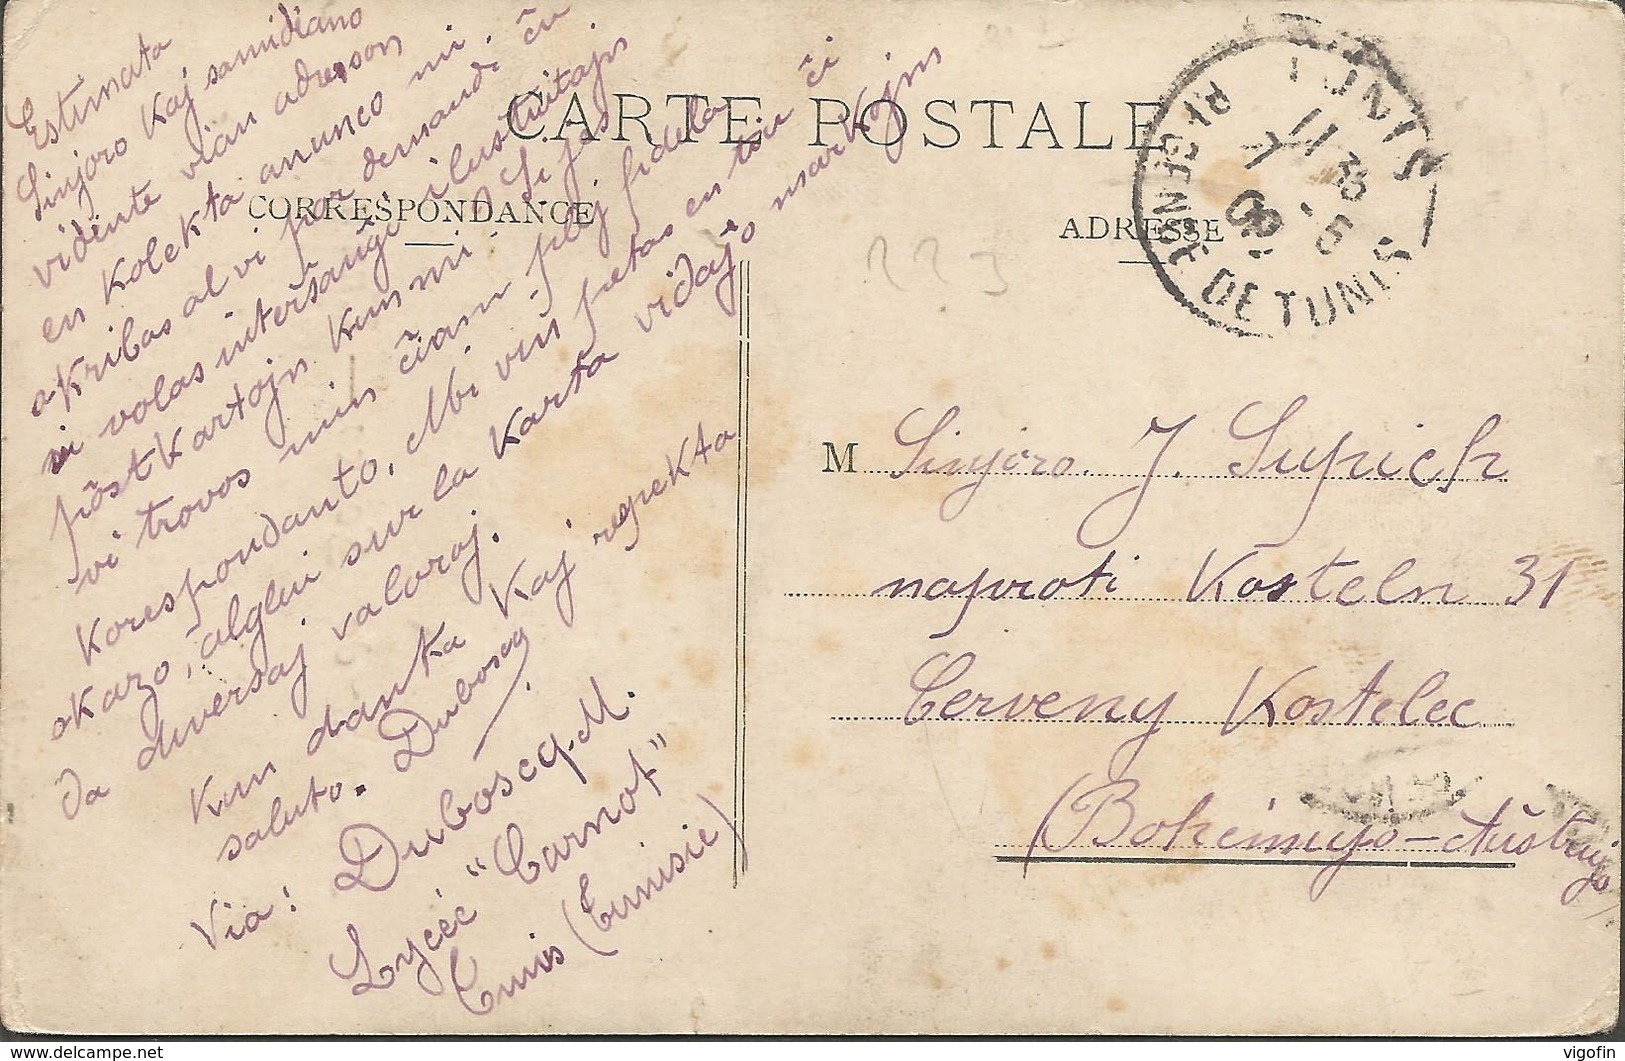 Estimata
Sinjoro Kaj samidiano
vidinte vian adreson
en Kolekta anunco mi
skribas al vi por demandi ĉu
ni volas interŝanĝi ilustritajn
pôstKartojn Kun mi. Si jes
vi trovos min ĉiam plej fidela
Korespondanto. Mi vin petas en tiu ĉi
okazo, alglui sur la Karta vidajo markojn
da diversaj valoraj.
Kun danka Kaj respekta
saluto. Duboscq
Via: Duboscq. M.
Lycée "Carnot"
Tunis (Tunisie)
CARTE POSTALE
CORRESPONDANCE
ADRESSE
TUNIS
11 35
7 - 5
08
RÉGENCE DE TUNIS
223
M Sinjoro. J. Supich
naproti Kosteln 31
Cerveny Kostelec
(Bohemujo-Aŭstrujo)
www.delcampe.net
vigofin